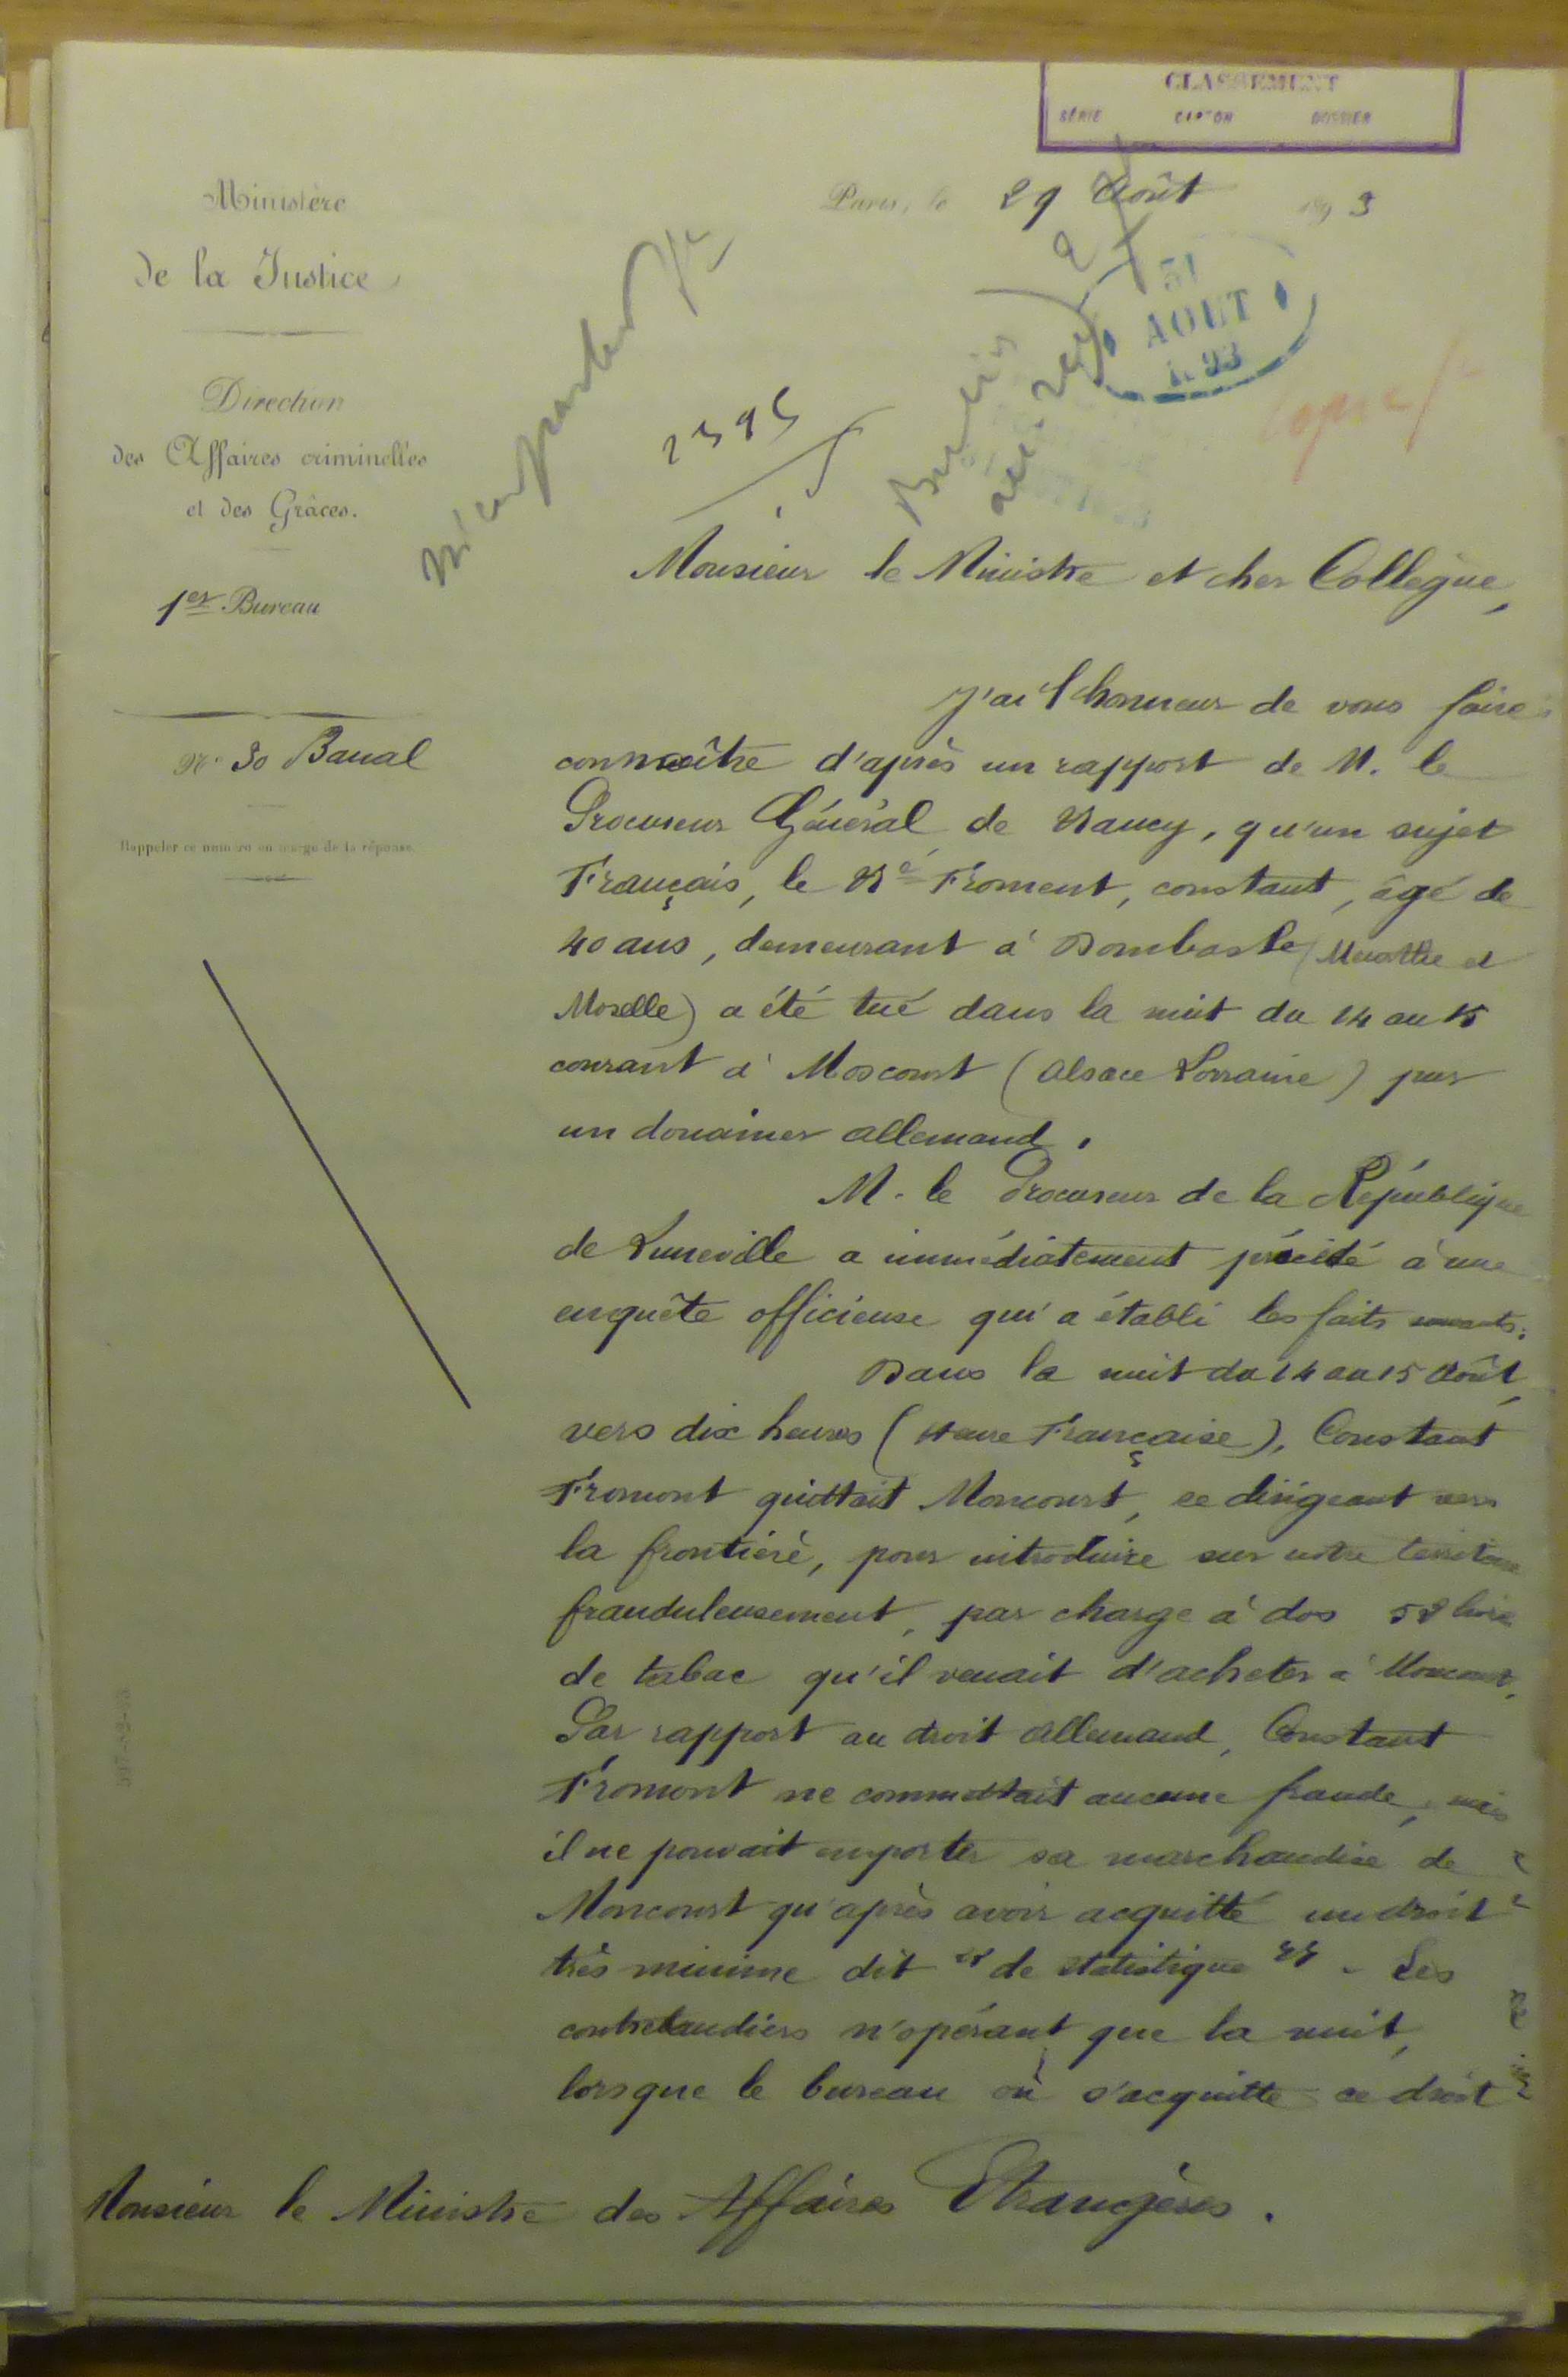 CLASSEMENT
SÉRIE CARTON DOSSIER
Ministère
de la Justice
Direction
des Affaires criminelles
et des Grâces.
1er Bureau
No 30 Banal
Rappeler ce numéro en marge de la réponse.
Paris, le 29 Août 1893
31
AOUT
1893
2395
Copie
Monsieur le Ministre et cher Collègue,
J'ai l'honneur de vous faire
connaître d'après un rapport de M. le
Procureur Général de Nancy, qu'un sujet
Français, le Né Froment, constant, âgé de
40 ans, demeurant à Dombasle (Meurthe et
Moselle) a été tué dans la nuit du 14 au 15
courant à Moscourt (Alsace Lorraine) par
un douanier allemand.
M. le Procureur de la République
de Luneville a immédiatement procédé à une
enquête officieuse qui a établi les faits suivants:
Dans la nuit du 14 au 15 Août,
vers dix heures (Heure Française), Constant
Fromont quittait Moncourt, se dirigeant vers
la frontière, pour introduire sur notre territoire
frauduleusement, par charge à dos 58
de tabac qu'il venait d'acheter à Moncourt.
Par rapport au droit allemand, Constant
Fromont ne commettait aucune fraude, mais
il ne pouvait emporter sa marchandise de
Moncourt qu'après avoir acquitté un droit
très minime dit "de statistique". Les
contrebandiers n'opérant que la nuit,
lorsque le bureau où s'acquitte ce droit
Monsieur le Ministre des Affaires Etrangères.